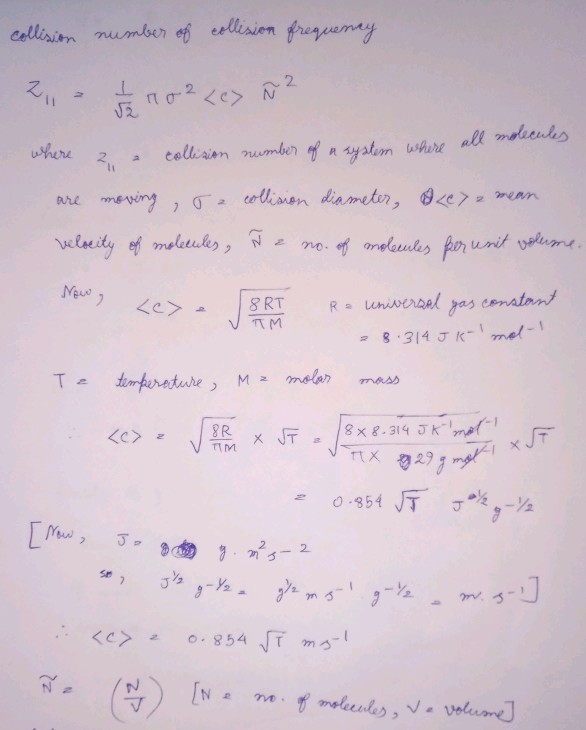 collision number of collision frequency
Z₁₁ = 1/√2 π σ² <c> Ñ²
where Z₁₁ = collision number of a system where all molecules
are moving, σ = collision diameter, <c> = mean
velocity of molecules, Ñ = no. of molecules per unit volume.
Now, <c> = √(8RT/πM) R = universal gas constant
= 8.314 J K⁻¹ mol⁻¹
T = temperature, M = molar mass
∴ <c> = √(8R/πM) × √T = √(8 × 8.314 J K⁻¹ mol⁻¹ / π × 29 g mol⁻¹) × √T
= 0.854 √T J^1/2 g^-1/2
[Now, J = g. m² s-2
so, J^1/2 g^-1/2 = g^1/2 m s⁻¹ . g^-1/2 = m. s⁻¹]
∴ <c> = 0.854 √T m s⁻¹
Ñ = (N/V) [N = no. of molecules, V = volume]